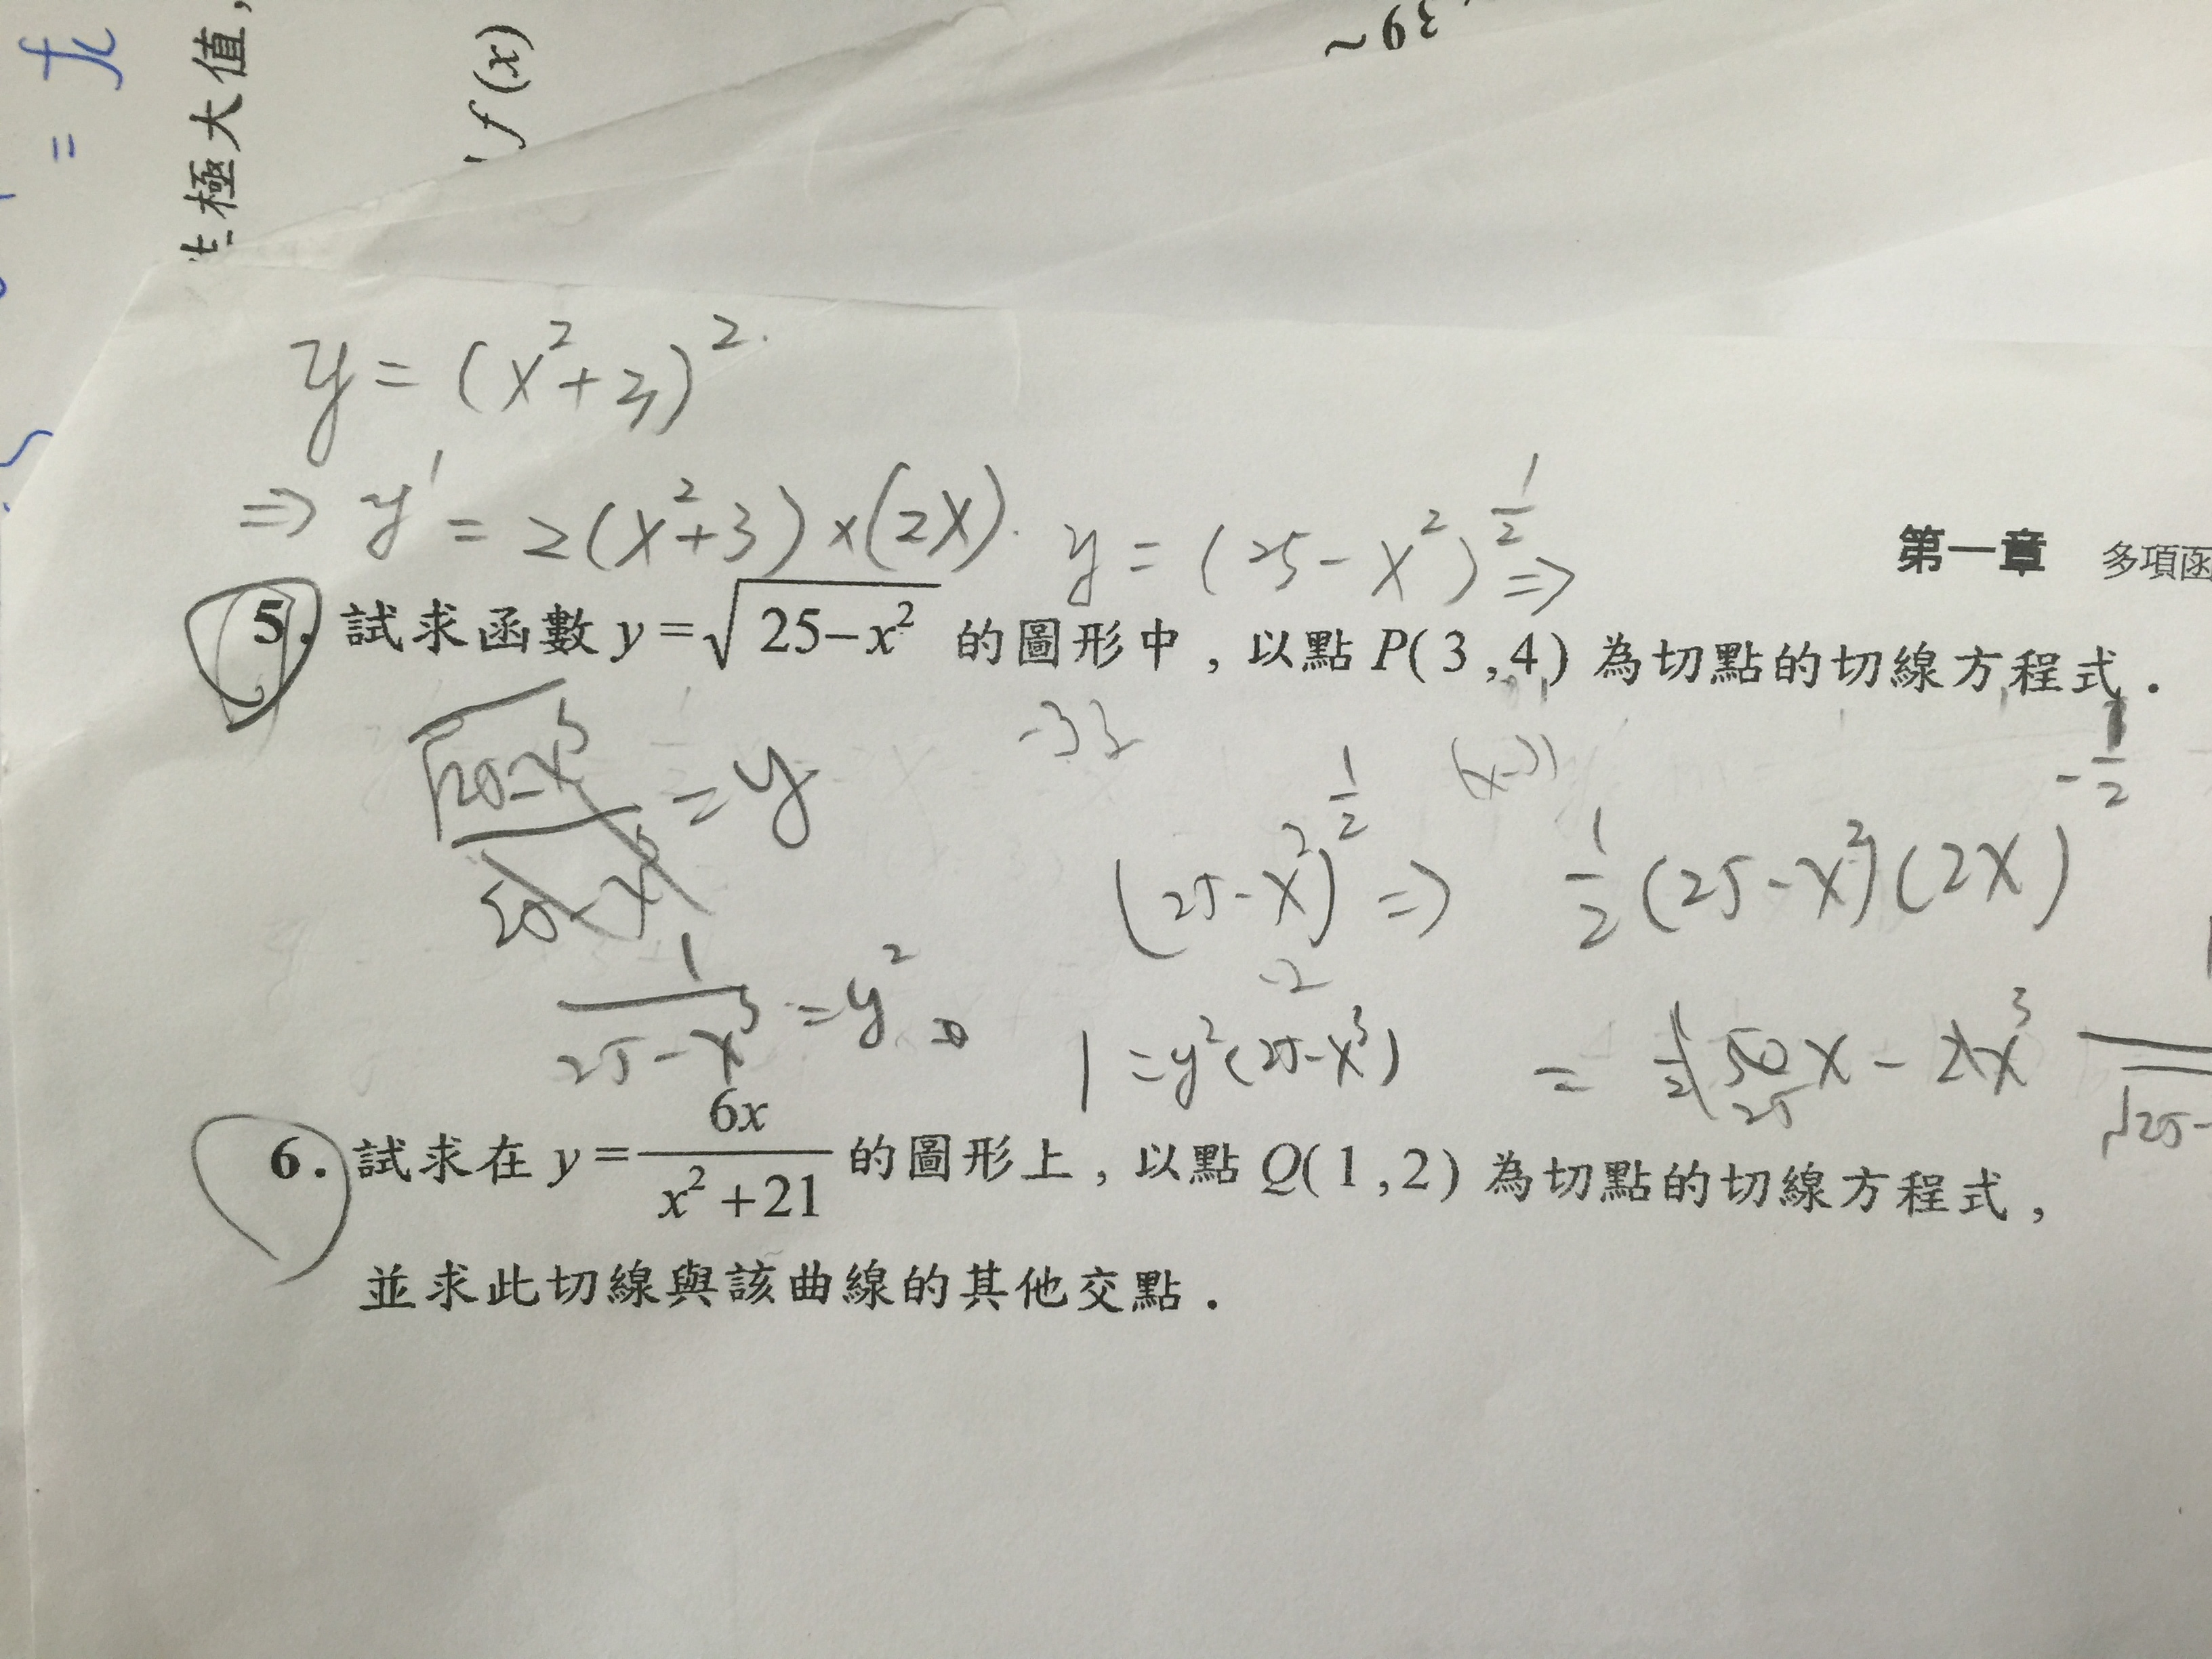 極大值,
f(x)
y = (x²+3)²
⇒ y' = 2(x²+3)×(2x).
y = (25-x²)^{1/2} ⇒
第一章 多項函
5. 試求函數 y=√(25-x²) 的圖形中,以點 P(3,4) 為切點的切線方程式.
= y
(x-3)
(25-x²)^{1/2} ⇒ 1/2 (25-x²)(2x)^{-1/2}
1/(25-x³) = y²
1 = y²(25-x³)
6. 試求在 y=6x/(x²+21) 的圖形上,以點 Q(1,2) 為切點的切線方程式,
並求此切線與該曲線的其他交點.